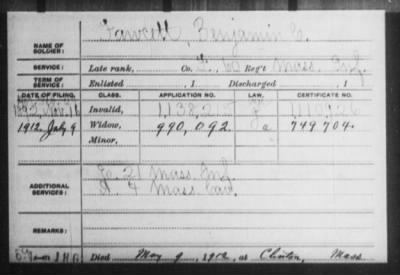 Fawcett, Benjamin
NAME OF SOLDIER:
SERVICE: Late rank, Co. Reg't Mass. Inf.
TERM OF SERVICE: Enlisted , 1 Discharged , 1
DATE OF FILING. CLASS. APPLICATION NO. LAW. CERTIFICATE NO.
Invalid,
1912. July 9 Widow, 990,092. 749704.
Minor,
ADDITIONAL SERVICES: 21 Mass. Inf.
4 Mass. Cav.
REMARKS:
Died May 9, 1912, at Clinton, Mass.